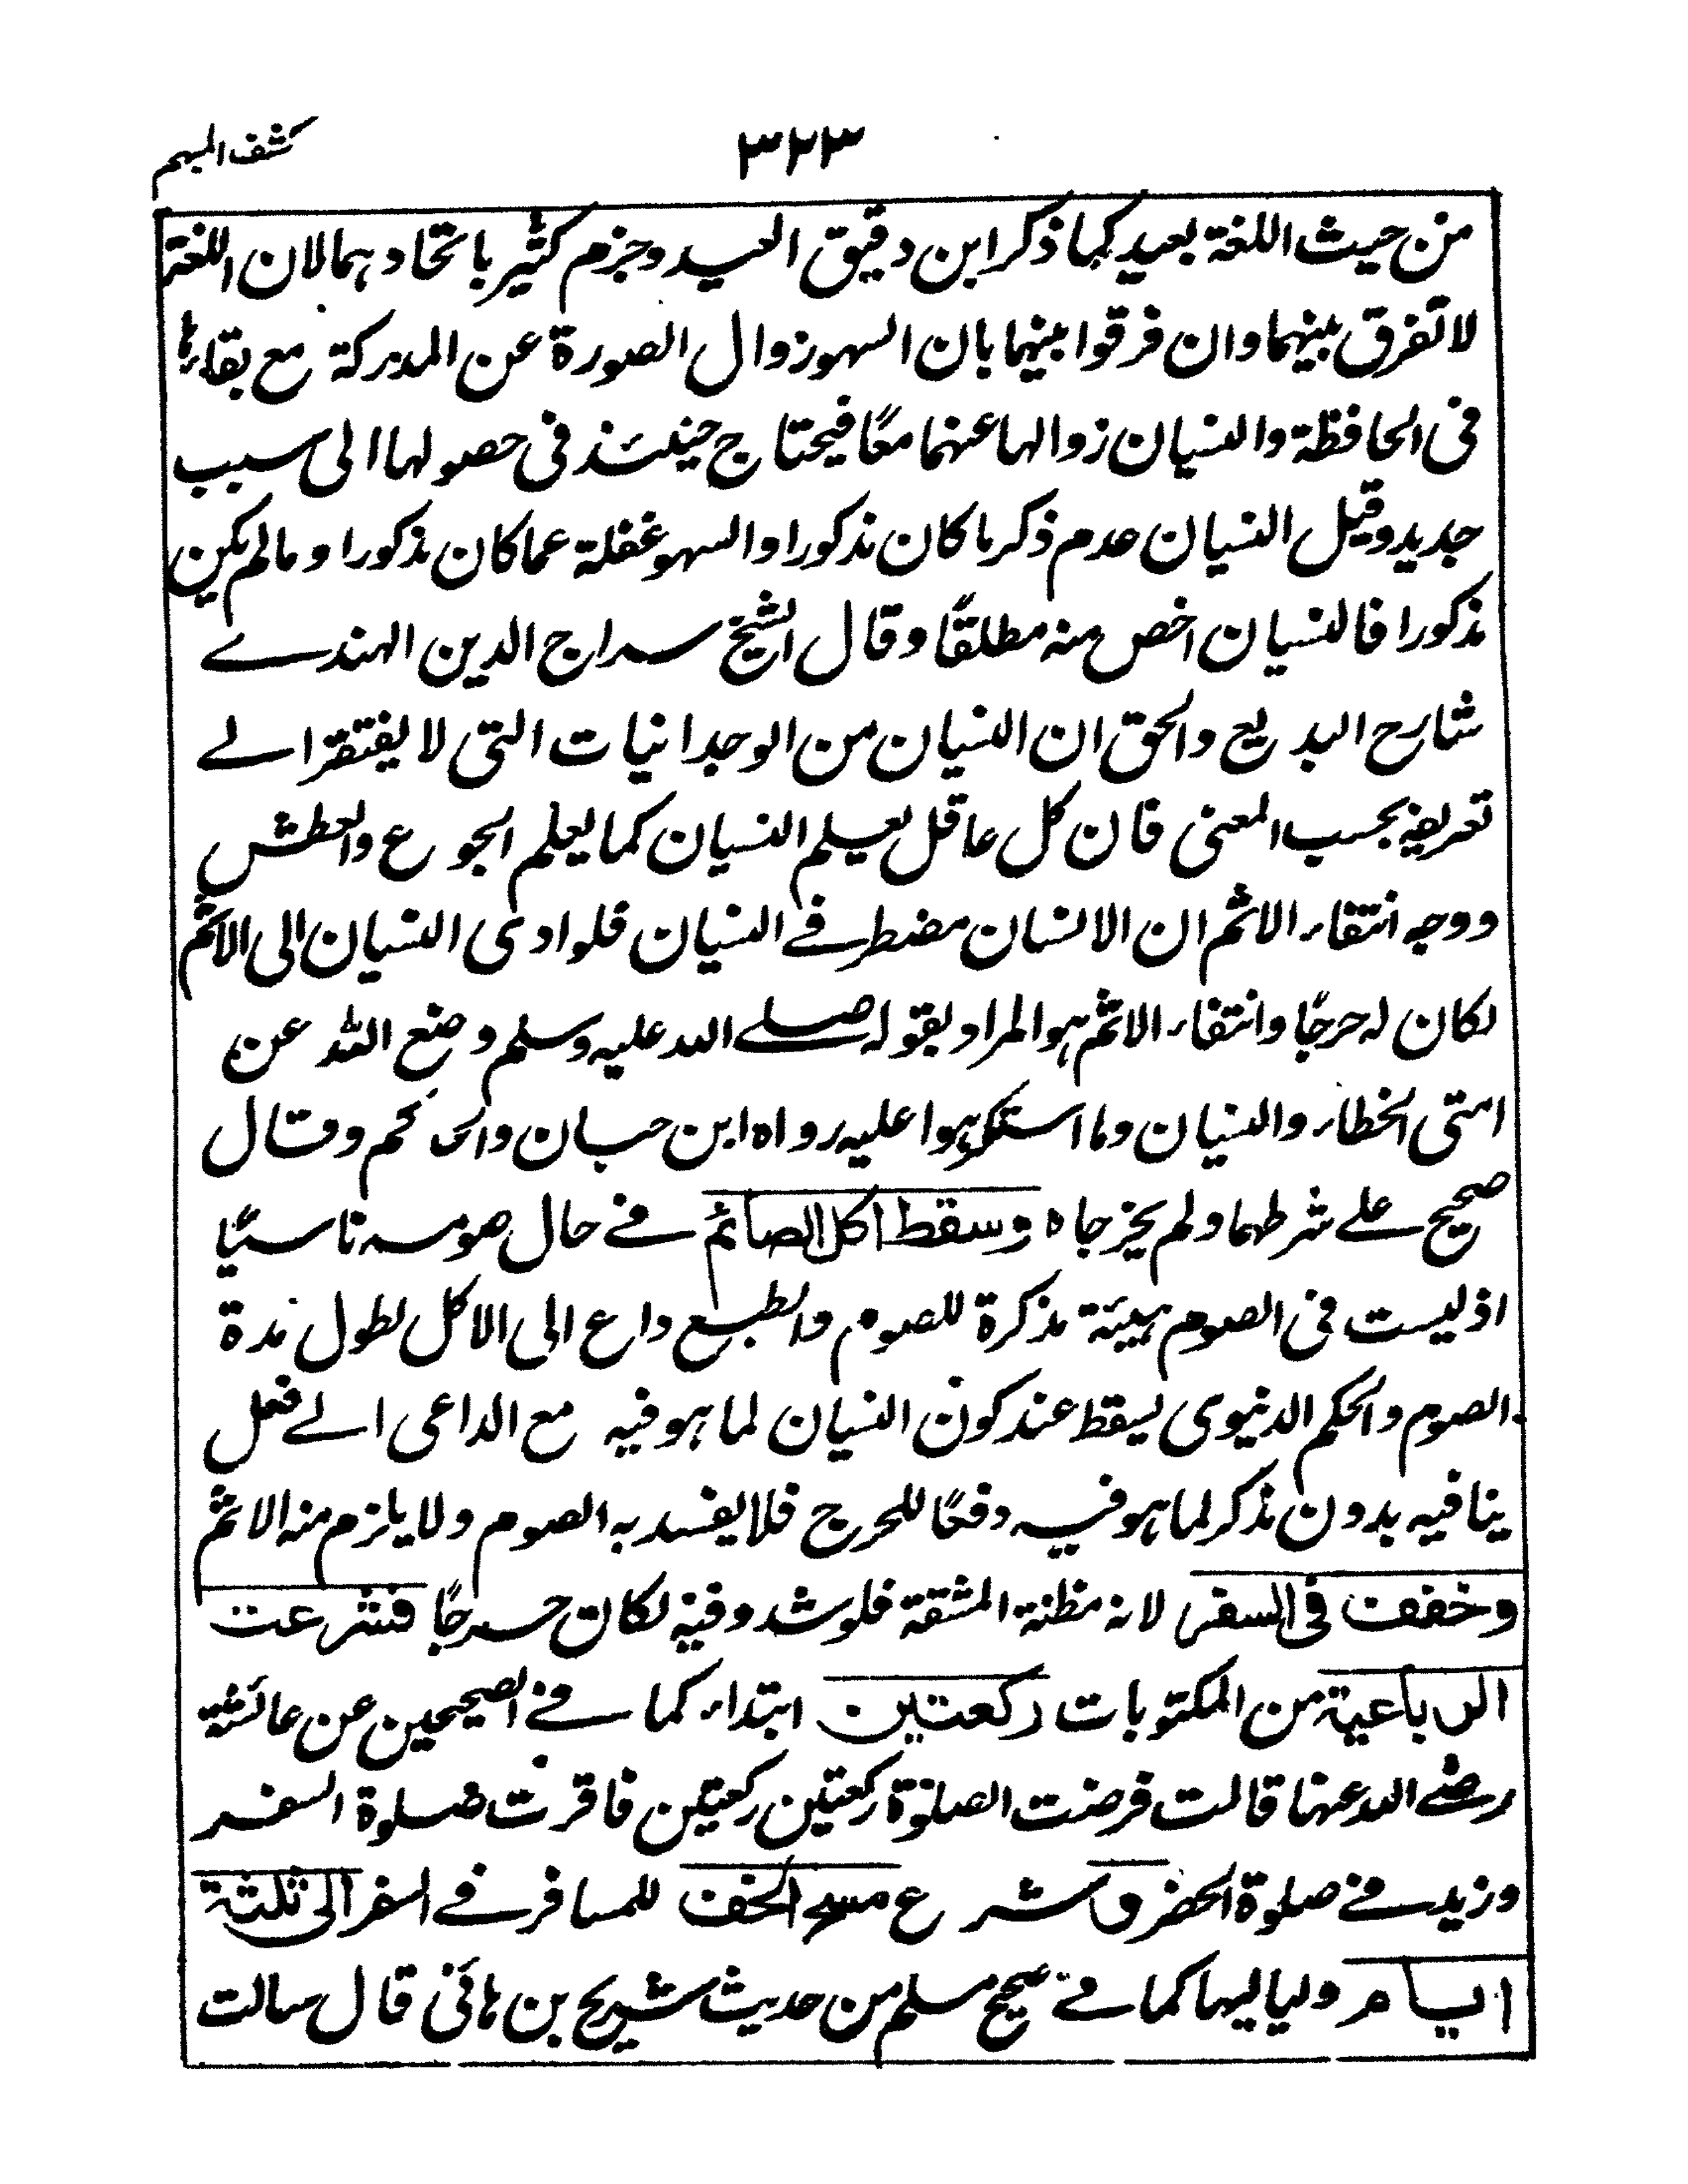 كشف المبهم
٣٢٣
من حيث اللغة بعيد كما ذكر ابن دقيق العيد وجزم كثير باتحادهما لان اللغة
لا تفرق بينهما وان فرقوا بينهما بان السهو زوال الصورة عن المدركة مع بقاءها
فى الحافظة والنسيان زوالها عنهما معًا فيحتاج حينئذ فى حصولها الى سبب
جديد وقيل النسيان عدم ذكر ما كان مذكورا والسهو غفلة عما كان مذكورا وما لم يكن
مذكورا فالنسيان اخص منه مطلقًا وقال الشيخ سراج الدين الهندے
شارح البديع والحق ان النسيان من الوجدانيات التى لا يفتقر الے
تعريفه بحسب المعنى فان كل عاقل يعلم النسيان كما يعلم الجوع والعطش
ووجه انتفاء الاثم ان الانسان مضطر فے النسيان فلو ادى النسيان الى الاثم
لكان له حرجًا وانتفاء الاثم هو المراد بقوله صلے الله عليه وسلم وضع الله عن
امتى الخطاء والنسيان وما استكرهوا عليه رواه ابن حبان والحاكم وقال
صحيح علے شرطهما ولم يخرجاه وسقط اكل الصائم فے حال صومه ناسيًا
اذ ليست فى الصوم هيئة مذكرة للصوم والطبع داع الى الاكل لطول مدة
الصوم والحكم الدنيوى يسقط عند كون النسيان لما هو فيه مع الداعى الے فعل
ينافيه بدون مذكر لما هو فيه دفعًا للحرج فلا يفسد به الصوم ولا يلزم منه الاثم
وخففت فى السفر لانه مظنة المشقة فلو شدد فيه لكان حرجًا فشرعت
الرباعية من المكتوبات ركعتين ابتداء كما فے الصحيحين عن عائشة
رضے الله عنها قالت فرضت الصلوة ركعتين ركعتين فاقرت صلوة السفر
وزيد فے صلوة الحضر وشرع مسح الخف للمسافر فے السفر الى ثلثة
ايام ولياليها كما فے صحيح مسلم من حديث شريح بن هانى قال سالت